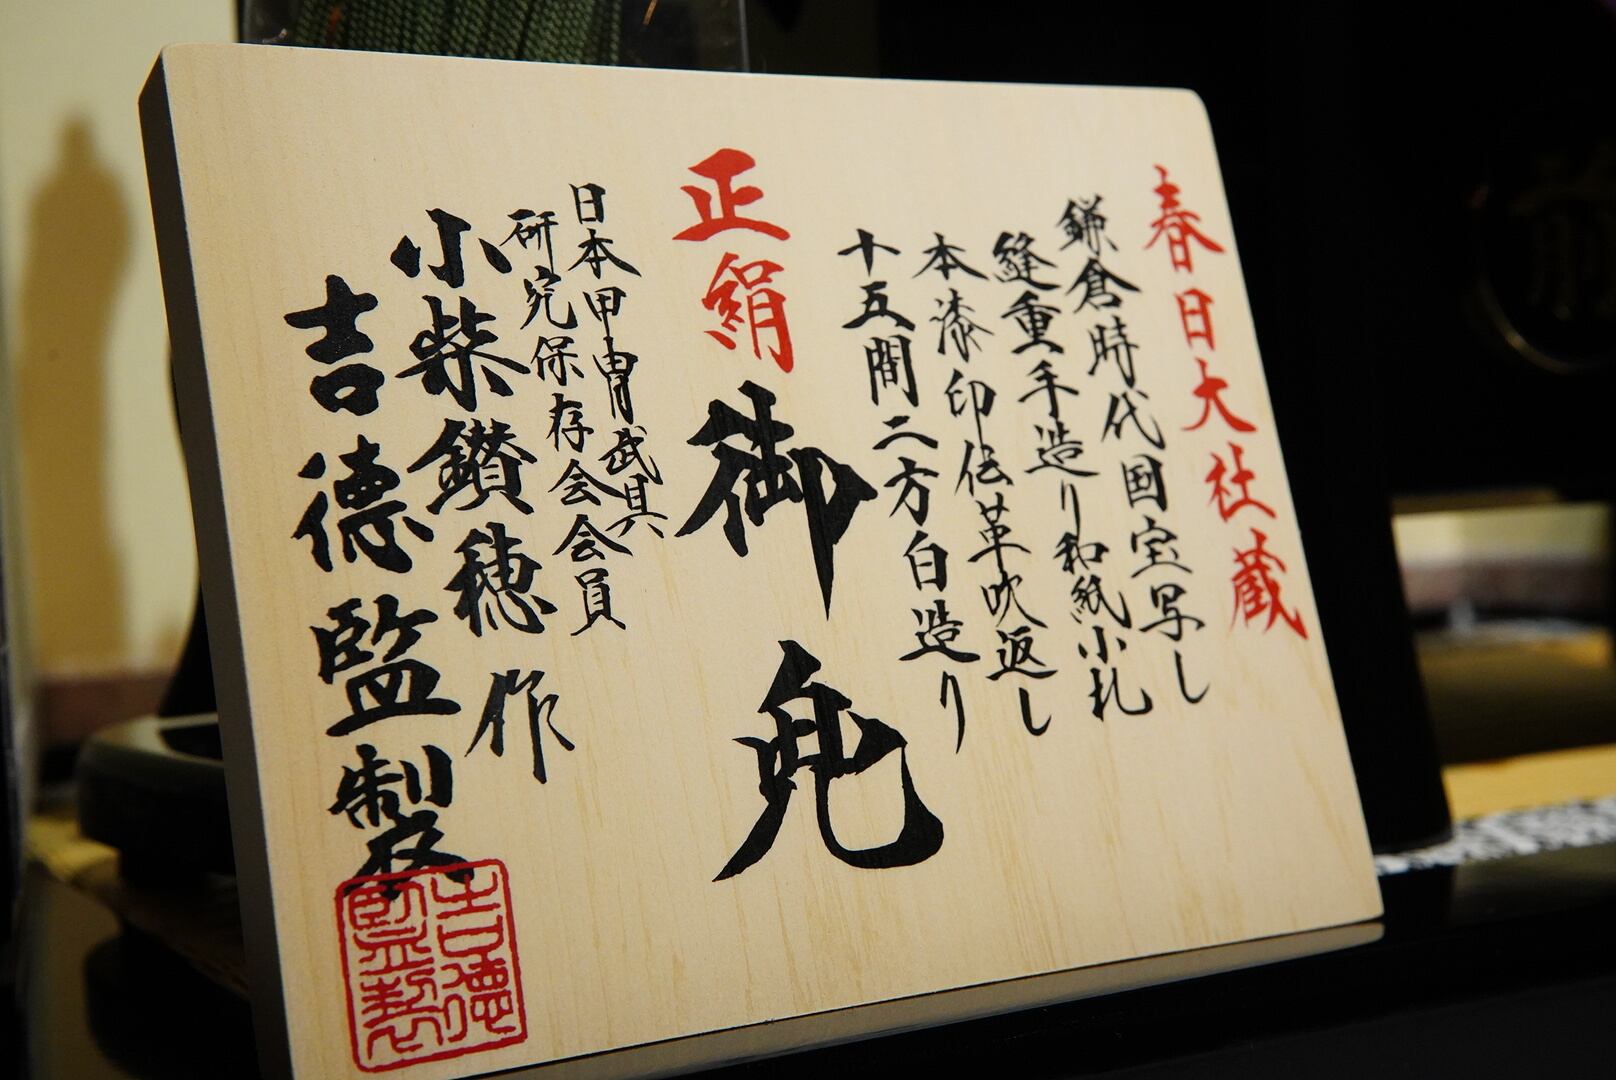 春日大社蔵
鎌倉時代国宝写し
縫重手造り和紙小札
本漆印伝革吹返し
十五間二方白造り
正絹御兜
日本甲冑武具
研究保存会会員
小柴鑚穂作
吉徳監製
吉徳
監製